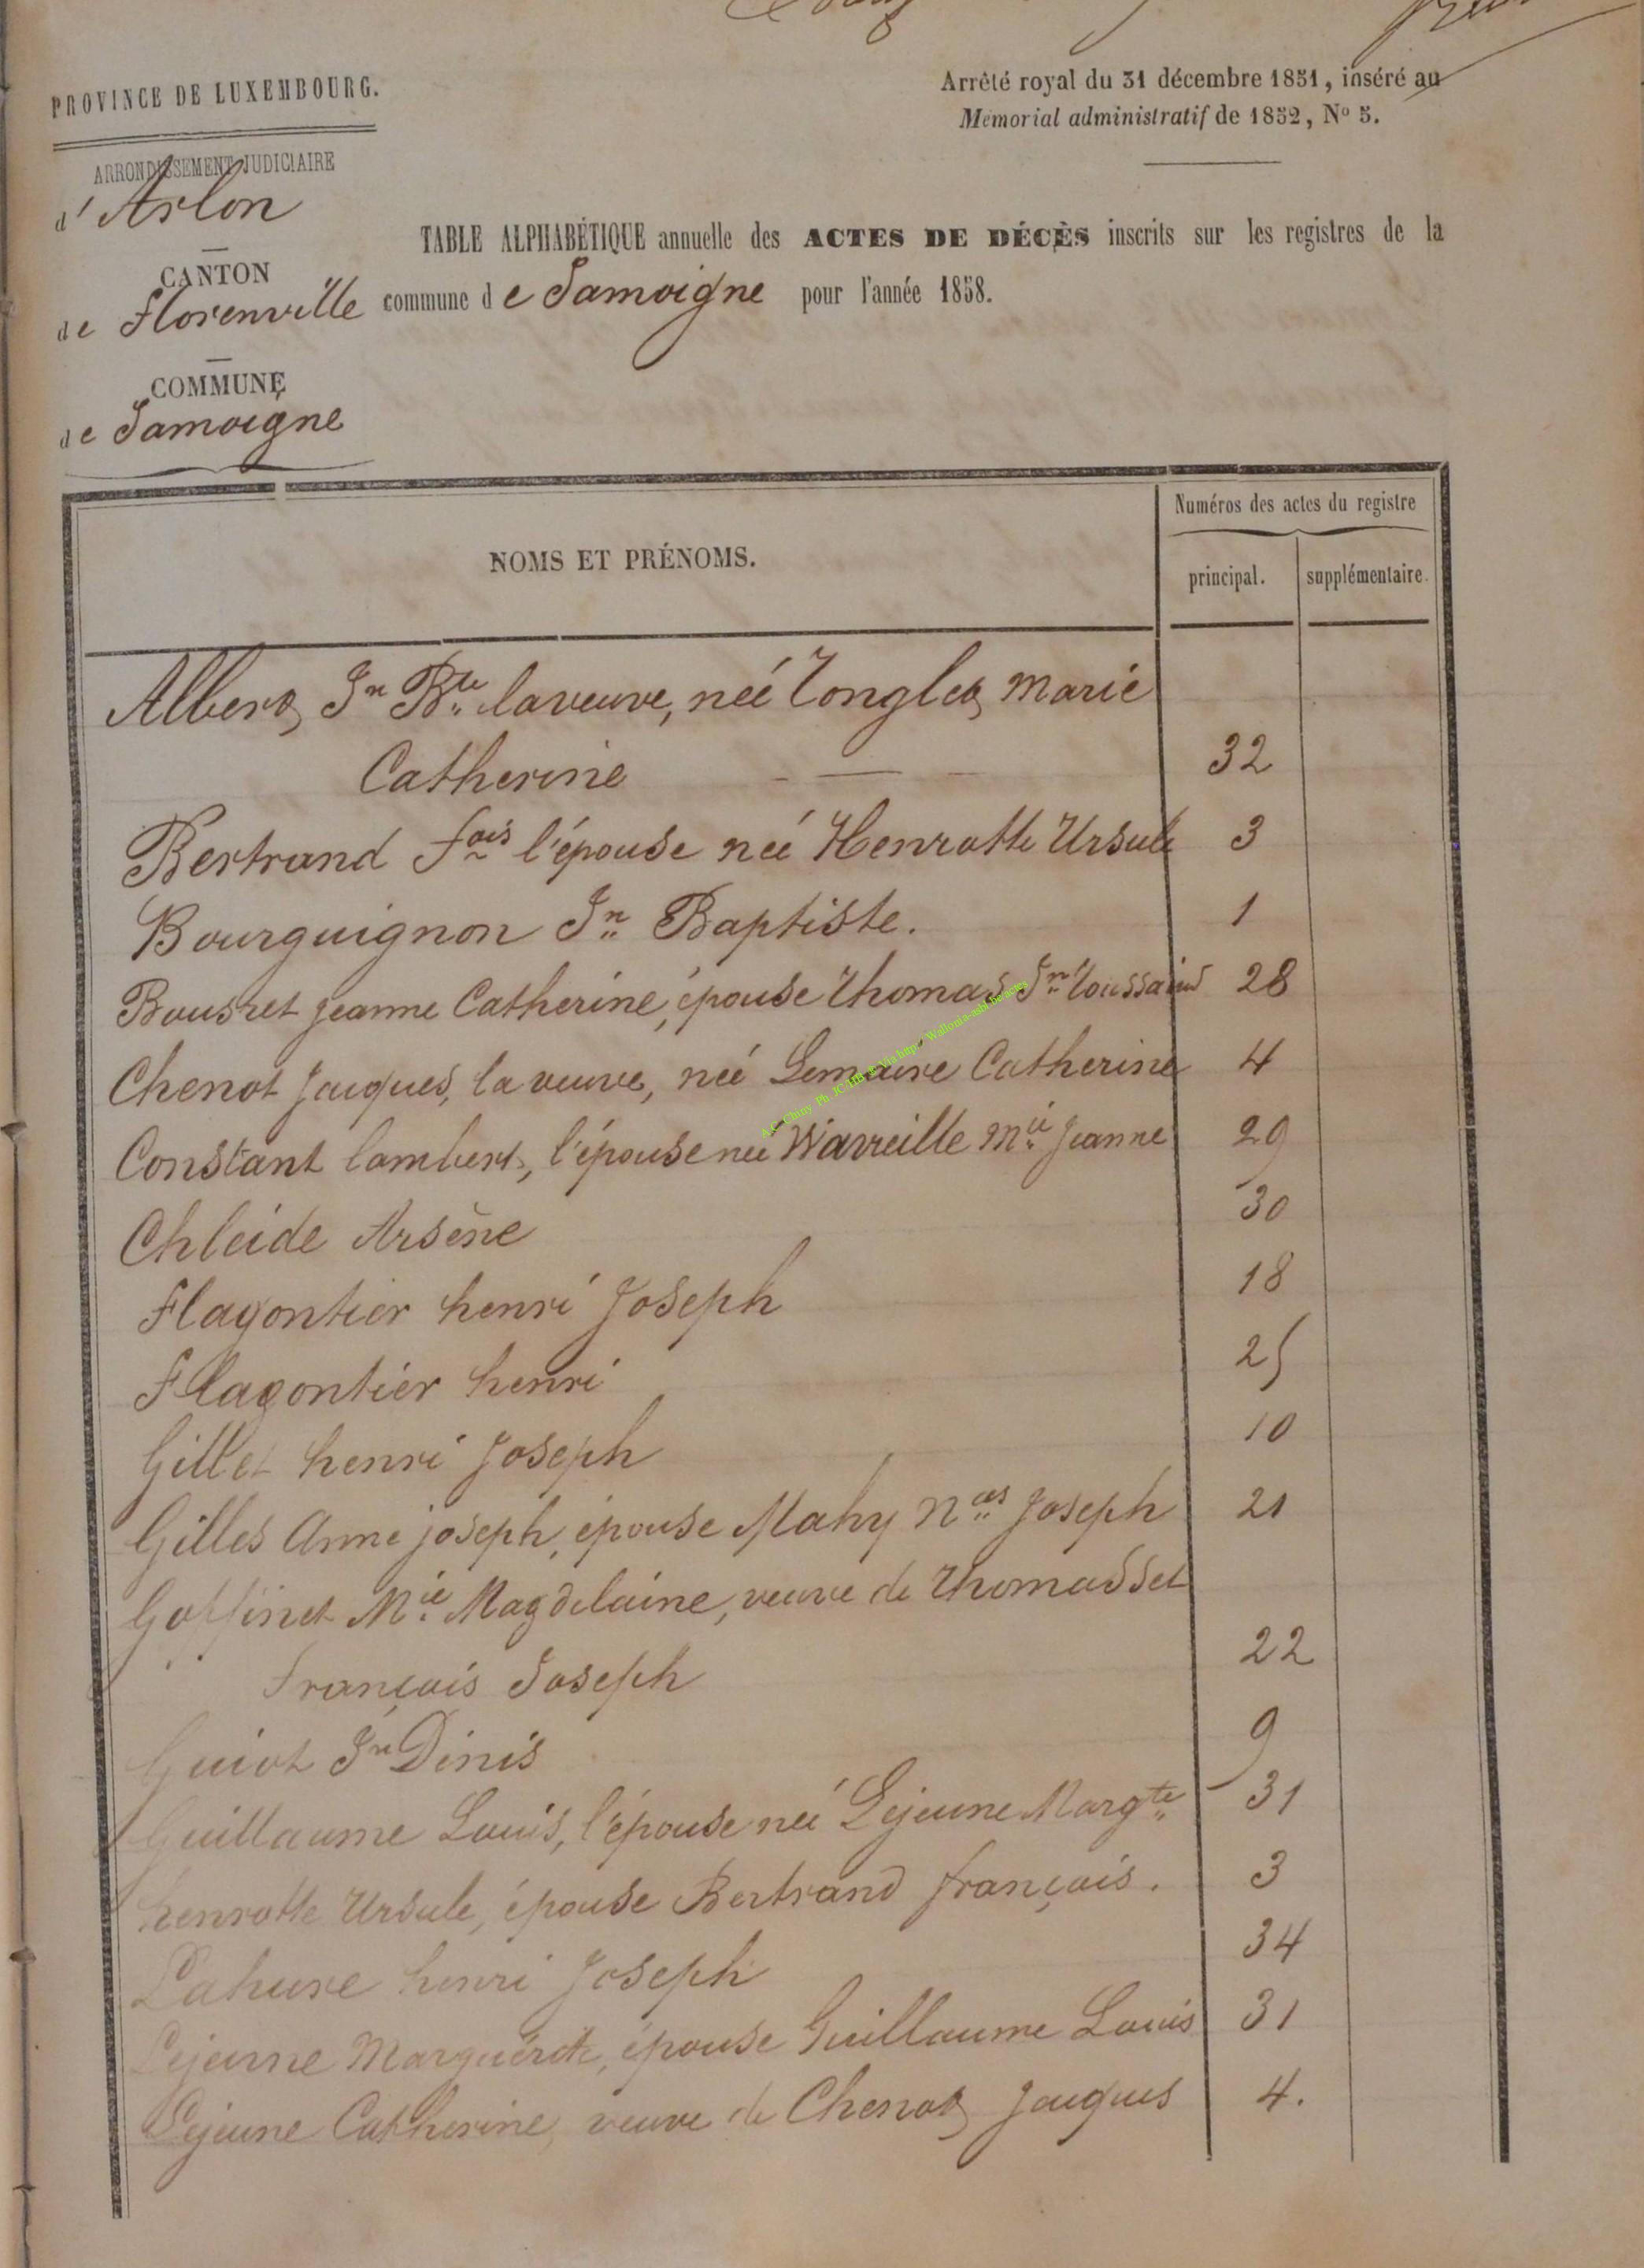 PROVINCE DE LUXEMBOURG.
ARRONDISSEMENT JUDICIAIRE
d'Arlon
CANTON
de Florenville
COMMUNE
de Jamoigne
Arrêté royal du 31 décembre 1851, inséré au
Mémorial administratif de 1852, No 5.
TABLE ALPHABÉTIQUE annuelle des ACTES DE DÉCÈS inscrits sur les registres de la
commune de Jamoigne pour l'année 1858.
NOMS ET PRÉNOMS.
Numéros des actes du registre
principal. supplémentaire.
Albert, Jn Bte la veuve, née Tonglet, Marie
Catherine 32
Bertrand fois l'épouse née Henrotte Ursule 3
Bourguignon Jn Baptiste. 1
Jeanne Catherine, épouse Thomas Jn Toussaint 28
Chenot Jacques, la veuve, née Catherine 4
Constant lambert, l'épouse née Wavreille Mie Jeanne 29
Chleide Arsène 30
Flagontier henri Joseph 18
Flagontier henri 25
Gillet henri Joseph 10
Gilles Anne joseph, épouse Mahy Nas Joseph 21
Goffinet Mie Magdelaine, veuve de Thomasset
François Joseph 22
Guiot Jn Dinis 9
Guillaume Louis, l'épouse née Lejeune Margte 31
henrotte Ursule, épouse Bertrand françois. 3
Lahure henri Joseph 34
Lejeune Marguerite, épouse Guillaume Louis 31
Lejeune Catherine, veuve de Chenot, Jacques 4.